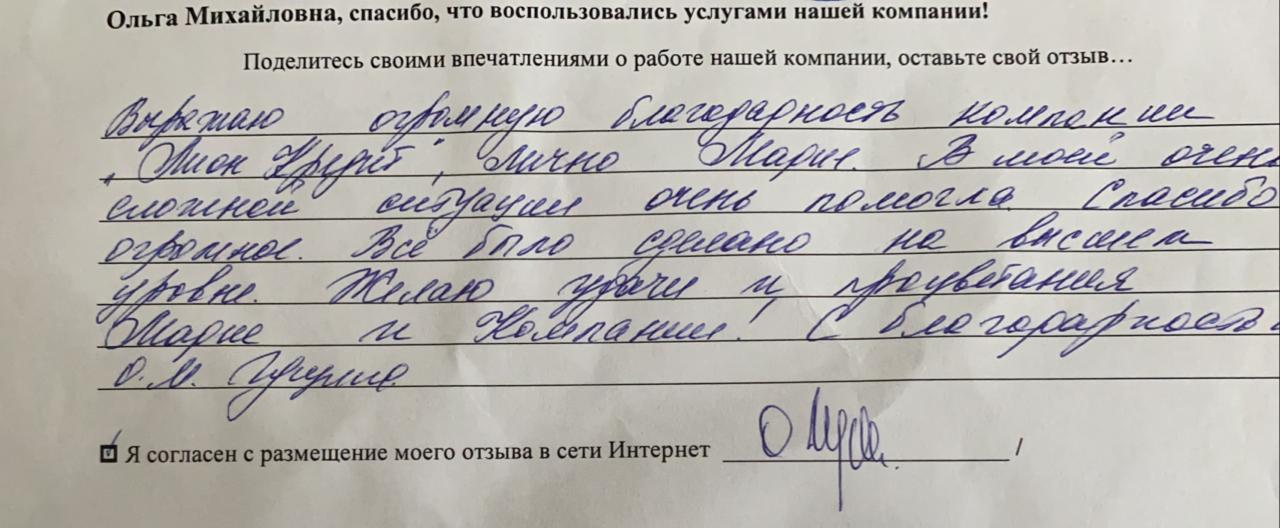 Ольга Михайловна, спасибо, что воспользовались услугами нашей компании!
Поделитесь своими впечатлениями о работе нашей компании, оставьте свой отзыв…
Выражаю огромную благодарность компании
„Лион Кредит“, лично Марие. В моей очень
сложной ситуации очень помогла. Спасибо
огромное. Всё было сделано на высшем
уровне. Желаю удачи и процветания
Марие и Компании! С благодарность
О.М.
Я согласен с размещение моего отзыва в сети Интернет /